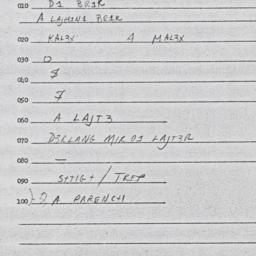 010 D1 BE1R
A LAJHINI BE1R
020 KAL3X A MAL3X
030 O
040 $
050 7
060 A LAJT3
070 D3RLANG MIR DI LAJT3R
080 —
090 S+TIG+ / TREP
100 A PARENCHI